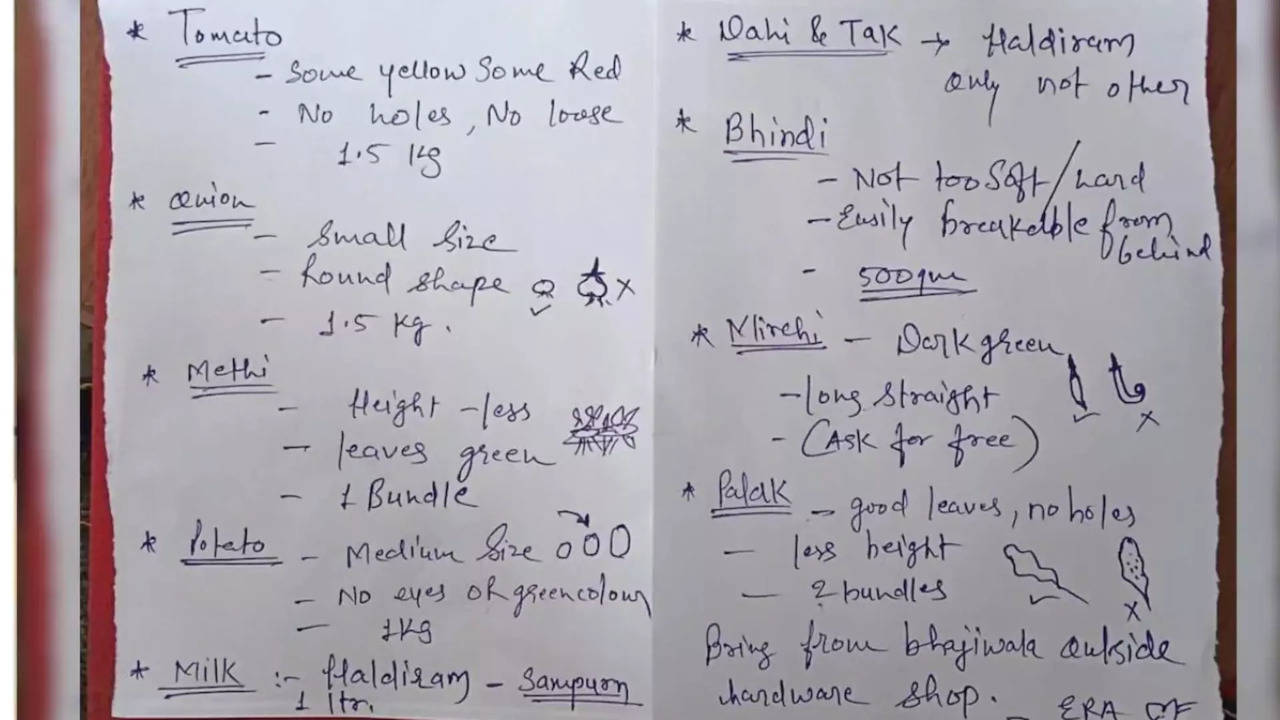 * Tomato
- Some yellow Some Red
- No holes, No loose
- 1.5 Kg
* Onion
- Small Size
- Round shape
- 1.5 Kg.
* Methi
- Height - less
- leaves green
- 1 Bundle
* Potato - Medium Size
- No eyes or green colour
- 1 Kg
* Milk :- Haldiram - Sampurn
1 ltr.
* Dahi & Tak → Haldiram
only not other
* Bhindi
- Not too Soft/hard
- Easily breakable from
behind
- 500gm
* Mirchi - Dark green
- long straight
- (Ask for free)
* Palak - good leaves, no holes
- less height
- 2 bundles
Bring from bhajiwala outside
hardware shop.